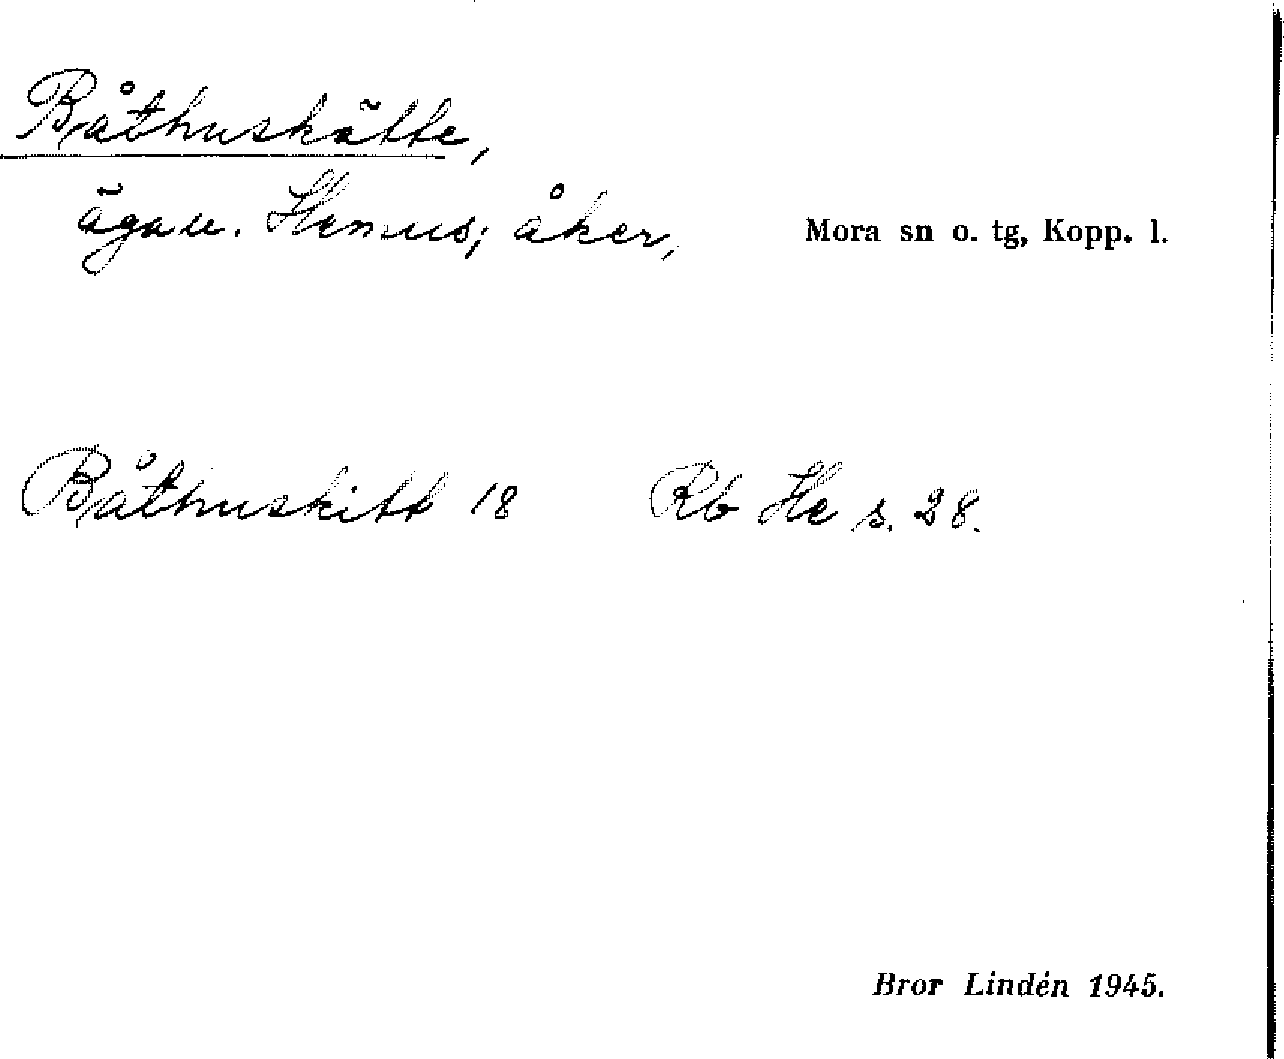 Båthuskätte,
ägan. Hemus; åker, Mora sn o. tg, Kopp. l.
Båthuskitt 18 Rb He s. 28.
Bror Lindén 1945.